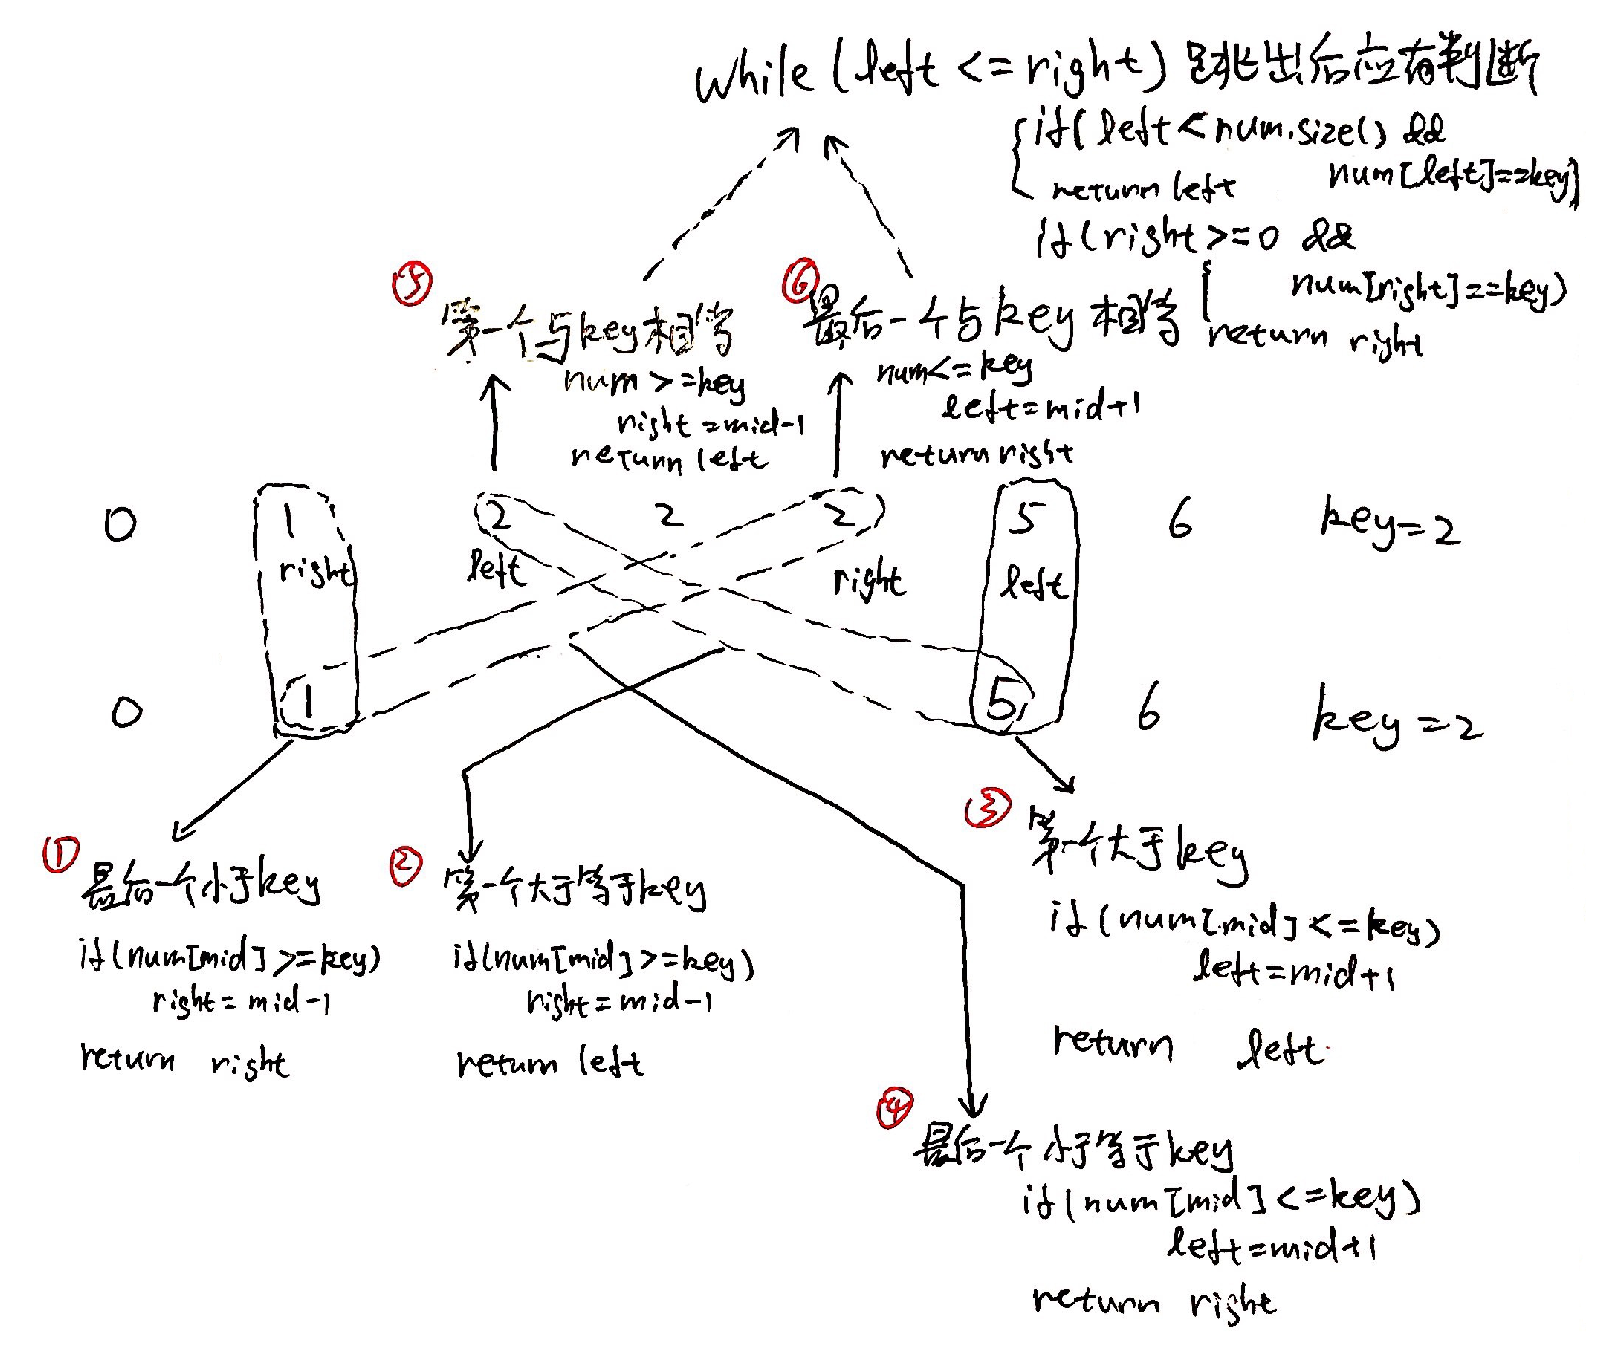 while (left <= right) 跳出后应有判断
if( left < num.size() &&
num[left]==key)
return left
if(right>=0 &&
num[right]==key)
return right
⑤
第一个与key相等
num >=key
right =mid-1
return left
⑥
最后一个与key相等
num<=key
left=mid+1
return right
0 1 2 2 2 5 6 key=2
right left right left
0 1 5 6 key=2
①
最后一个小于key
if(num[mid] >=key)
right = mid-1
return right
②
第一个大于等于key
if(num[mid] >=key)
right=mid-1
return left
③
第一个大于key
if (num[mid] <=key)
left=mid+1
return left
④
最后一个小于等于key
if(num[mid] <=key)
left=mid+1
return right